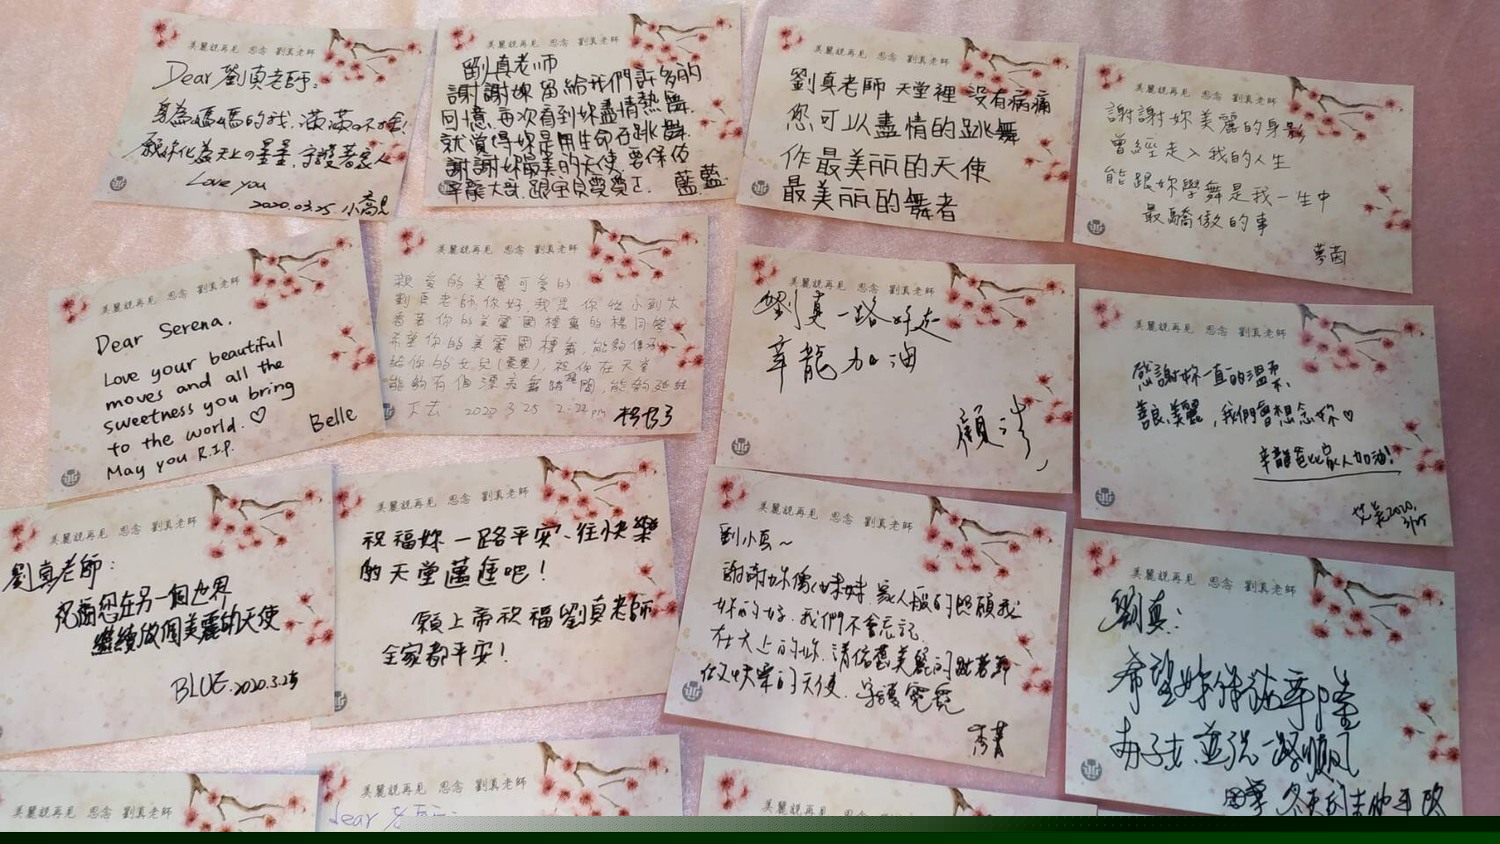 美麗說再見 思念 劉真老師
Dear 劉真老師:
身為媽媽的我,滿滿の不捨!
願妳化為天上の星星,守護著家人
Love you
2020.03.25 小喬
美麗說再見 思念 劉真老師
劉真老师
謝謝妳留給我們許多的
回憶,再次看到妳盡情熱舞,
就覺得妳是用生命在跳舞,
謝謝妳最美的天使,要保佑
辛龍大哥,跟寶貝
藍藍
美麗說再見 思念 劉真老師
劉真老師 天堂裡 沒有病痛
您可以盡情的跳舞
作最美丽的天使
最美丽的舞者
美麗說再見 思念 劉真老師
謝謝妳美麗的身影
曾經走入我的人生
能跟妳學舞是我一生中
最驕傲的事
夢茵
美麗說再見 思念 劉真老師
Dear Serena,
Love your beautiful
moves and all the
sweetness you bring
to the world. ♡
May you R.I.P.
Belle
美麗說再見 思念 劉真老師
親愛的美麗可愛的
劉真老師你好 我是你從小到大
看著你的美麗國標舞的楊同學
希望你的美麗國標舞,能夠傳承
給你的女兒(霓霓),祝你在天堂
能夠有個漂亮舞蹈團,能夠延續
下去 2020 3 25 2:22 pm
美麗說再見 思念 劉真老師
劉真一路好走
辛龍加油
美麗說再見 思念 劉真老師
感謝妳一直的溫柔、
善良、美麗,我們會想念妳♡
辛龍爸比家人加油!
2020, 3/25
美麗說再見 思念 劉真老師
劉真老師:
祝福您在另一個世界
繼續做個美麗的天使
BLUE. 2020.3.25
美麗說再見 思念 劉真老師
祝福妳一路平安、往快樂
的天堂邁進吧!
願上帝祝福劉真老師
全家都平安!
美麗說再見 思念 劉真老師
劉小真~
謝謝妳像姊妹 家人般的照顧我
妳的好,我們不會忘記
在天上的妳,請倍舊美麗的跳著舞
做快樂的天使,守護霓霓
美麗說再見 思念 劉真老師
劉真:
希望妳保祐辛隆
一路順風
美麗說再見 思念 劉真老師
美麗說再見 思念 劉真老師
dear
美麗說再見 思念 劉真老師